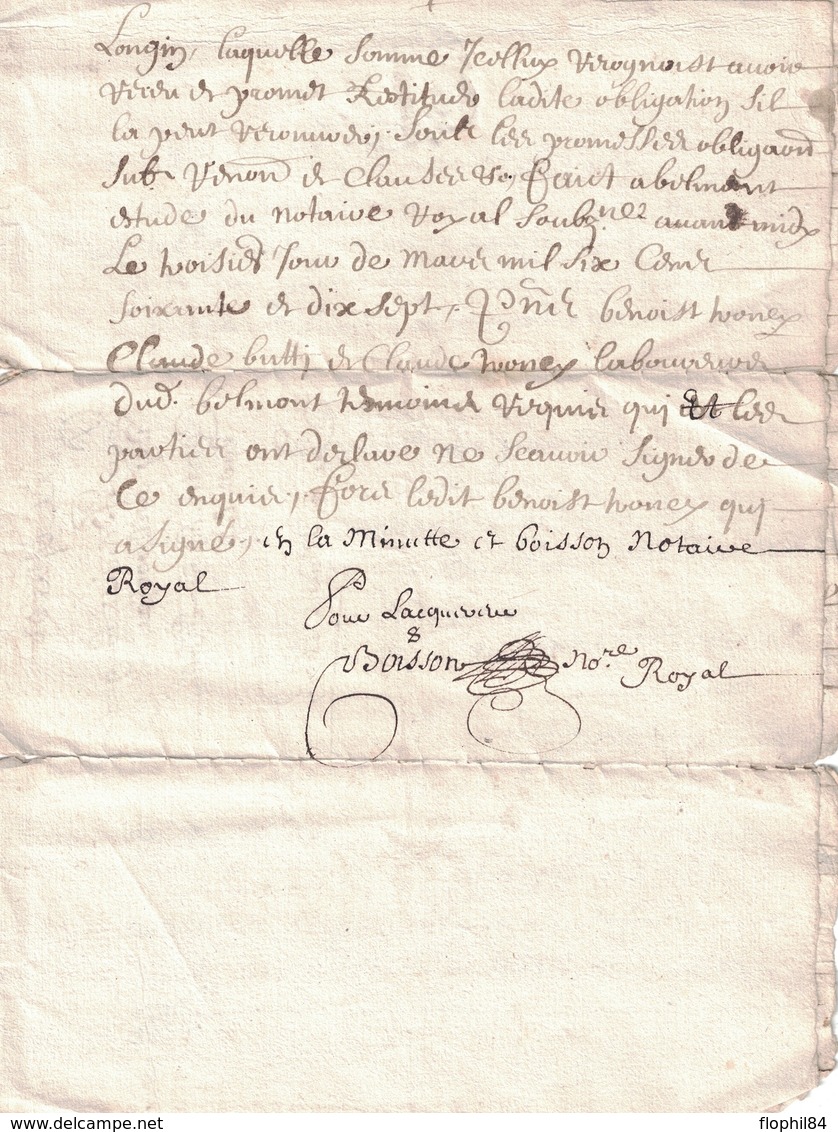 Longin, laquelle somme Icelluy recognoist avoir
receu et promet Restituer ladite obligation sil
la peut retrouver, soubs les promesses obligaons
sub renon et clauses &c, Faict a belmont
estude du notaire royal soubz.nez avant midy
Le troisies Jour de Mars mil six Cens
soixante et dix sept, pñs benoist troney
Claude butti et Claude troney laboureurs
dud. belmont tesmoins requis qui et les
parties ont desclare ne scavoir signer de
ce enquis, Fors ledit benoist troney qui
a signé, en la Minutte et boisson Notaire
Royal
Pour Lacquereur
Boisson No.re Royal
www.delcampe.net
flophil84